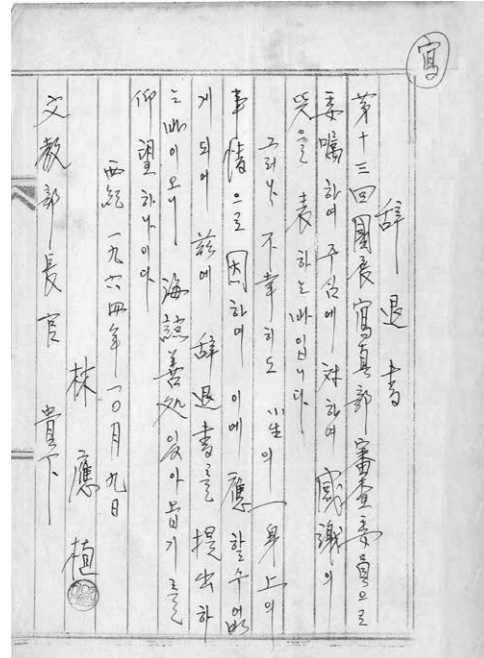 寫
辭退書
第十三回國展寫眞部審査委員으로
委囑하여 주심에 対하여 感謝의
뜻을 表하는바입니다.
그러나 不幸히도 小生의 一身上의
事情으로 因하여 이에 應할수없
게 되어 玆에 辭退書를 提出하
는바이오니 海諒善処 있아옵기를
仰望하나이다.
西紀 一九六四年 一〇月 九日
林應植
文敎部長官 貴下